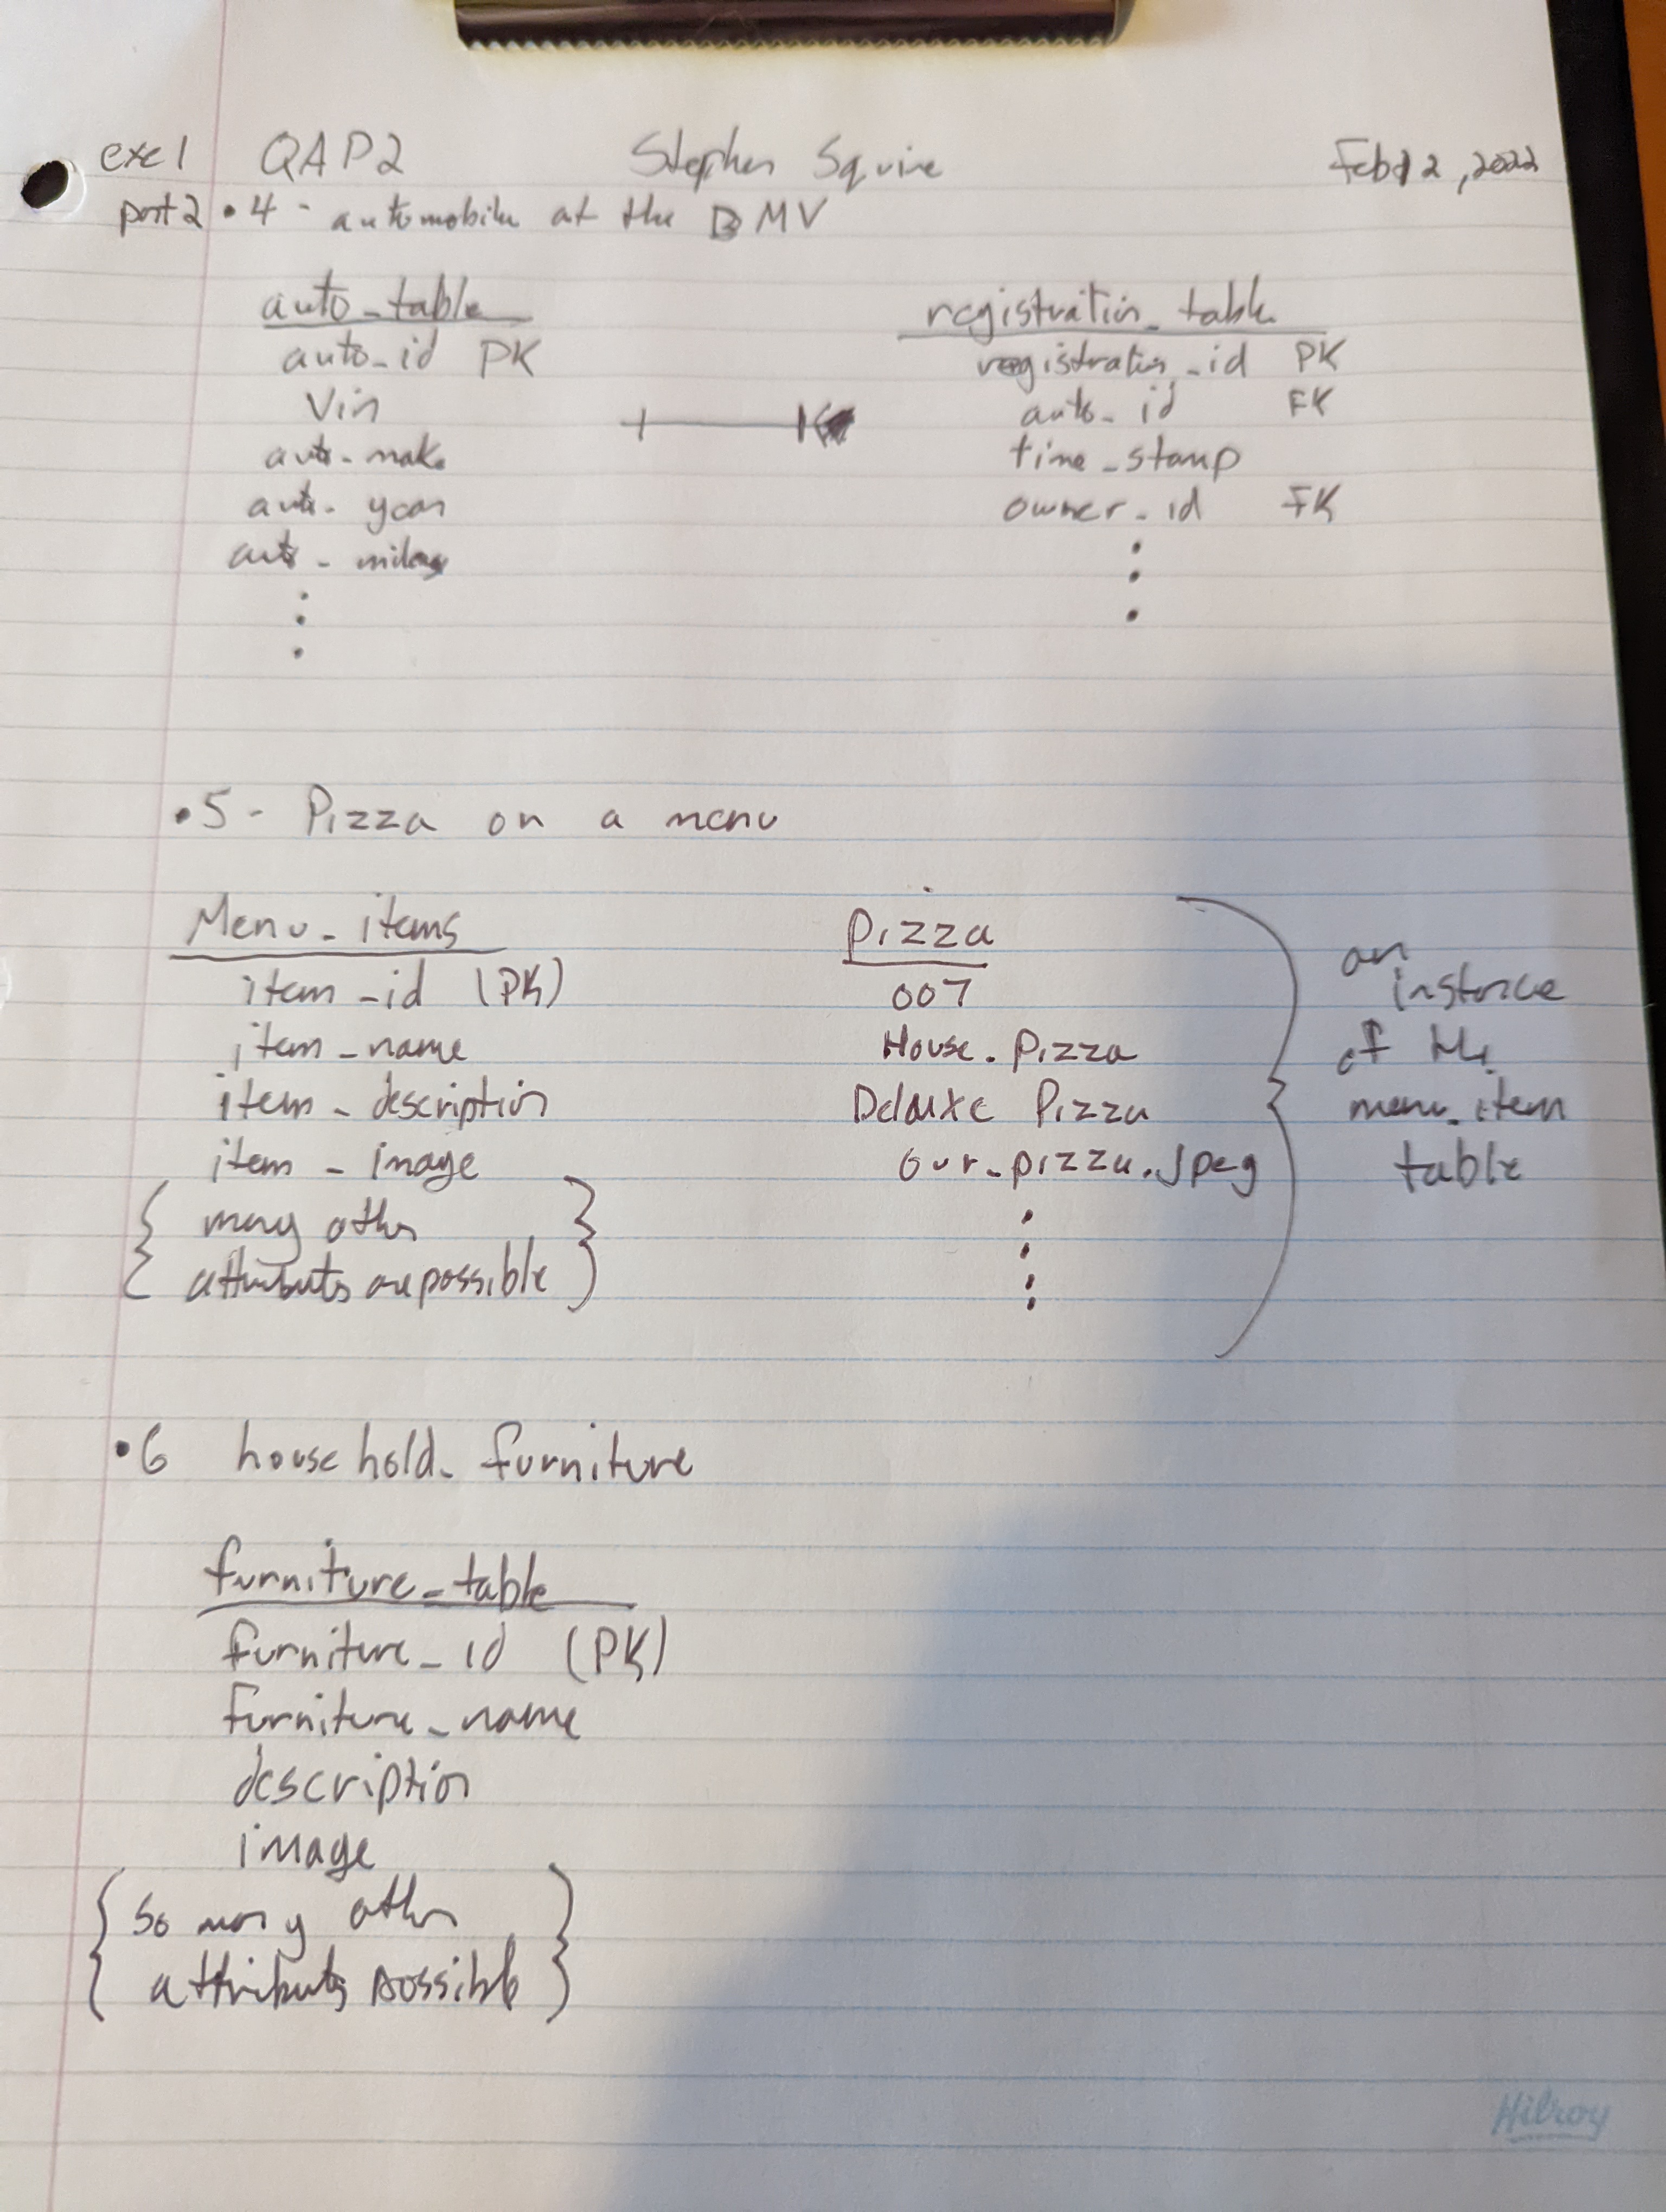 exc 1 QAP2 Stephen Squire Feb 12, 2022
part 2 • 4 - automobile at the DMV
auto_table
auto_id PK
Vin
auto_make
auto_year
auto_milage
registration_table
registration_id PK
auto_id FK
time_stamp
owner_id FK
• 5 - Pizza on a menu
Menu_items
item_id (PK)
item_name
item_description
item_image
{ many other }
{ attributes are possible }
Pizza
007
House. Pizza
Deluxe Pizza
our_pizza.jpeg
an
instance
of the
menu_item
table
• 6 household_furniture
furniture_table
furniture_id (PK)
furniture_name
description
image
{ So many other }
{ attributes possible }
Hilroy